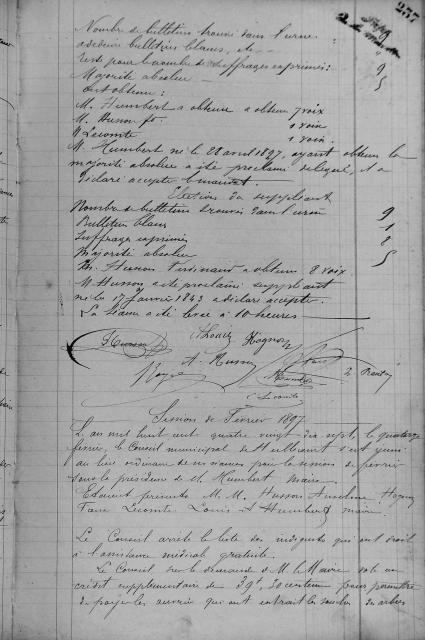 237
Nombre de bulletins trouvés dans l'urne : 9
à déduire bulletins blancs, etc —
Reste pour le nombre de suffrages exprimés : 9
Majorité absolue — 5
Ont obtenu :
M. Humbert a obtenu a obtenu 7 voix
M. Husson fd. 1 voix
M Lecomte 1 voix.
M. Humbert né le 28 avril 1897, ayant obtenu la
majorité absolue a été proclamé délégué, et a
déclaré accepter le mandat.
Elections du suppléant
Nombre de bulletins trouvés dans l'urne 9
Bulletin blanc 1
Suffrages exprimés 8
Majorité absolue 5
M. Husson Ferdinand a obtenu 8 voix.
M Husson a été proclamé suppléant
né le 17 Janvier 1843 a déclaré accepter.
La séance a été levée à 10 heures
Husson Louis Hognon
A. Husson
Lecomte
Session de Février 1897
L'an mil huit cent quatre vingt dix sept, le quatorze
février, le Conseil municipal de s'est réuni
au lieu ordinaire de ses séances pour la session de février
sous la présidence de M. Humbert maire.
Etaient présents M. M. Husson Anselme Hognon
Lecomte Louis et Humbert maire.
Le Conseil arrête la liste des indigents qui ont droit
à l'assistance médicale gratuite.
Le Conseil sur la demande de M. le Maire vote un
crédit supplémentaire de 39f, 50 centimes pour permettre
de payer les ouvriers qui ont extrait les souches des arbres